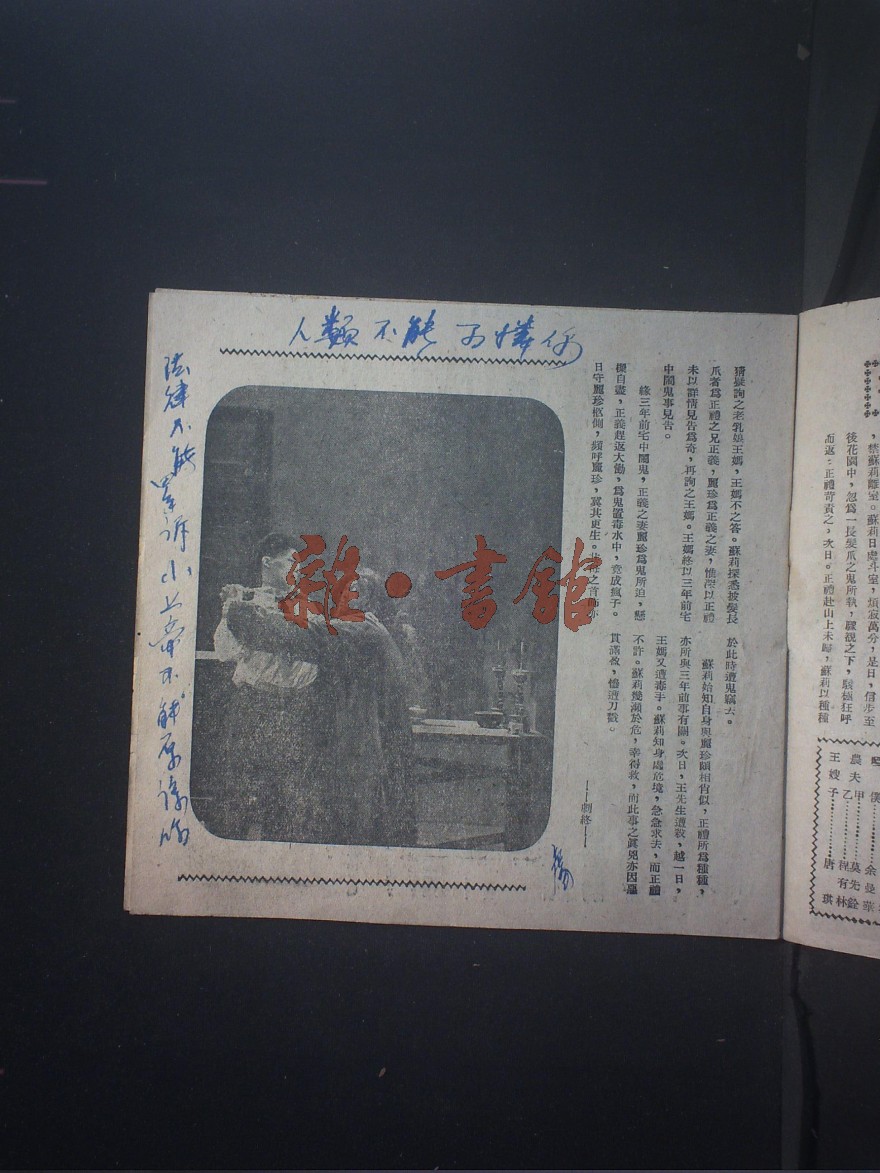 ，禁蘇莉離室。蘇莉日處斗室，煩寂萬分，是日，信步至
後花園中，忽爲一長髮爪之鬼所執，驟視之下，駭極狂呼
而返；正禮苛責之，次日。正禮赴山上未歸，蘇莉以種種
僕
農夫甲 余曼華
乙 莫先銓
王嫂子 程有林
唐琪
猜疑詢之老乳娘王媽，王媽不之答。蘇莉探悉披髮長
爪者爲正禮之兄正義，麗珍爲正義之妻，惟陞以正禮
未以詳情見告爲奇，再詢之王媽。王媽終以三年前宅
中鬧鬼事見告。
緣三年前宅中鬧鬼，正義之妻麗珍爲鬼所迫，懸
樑自盡，正義趕返大慟，爲鬼置毒水中，竟成瘋子。
日守麗珍柩側，頻呼麗珍，冀其更生。之首飾亦
於此時遭鬼竊去。
蘇莉始知自身與麗珍頗相肖似，正禮所爲種種，
亦所與三年前事有關。次日，王先生遭殺，越一日，
王媽又遭毒手。蘇莉知身處危境，急急求去，而正禮
不許。蘇莉幾瀕於危，幸得救，而此事之眞兇亦因惡
貫滿盈，慘遭刀戮。
——劇終——
人類不能可憐你
法律不能 上帝不能原諒
雜·書館